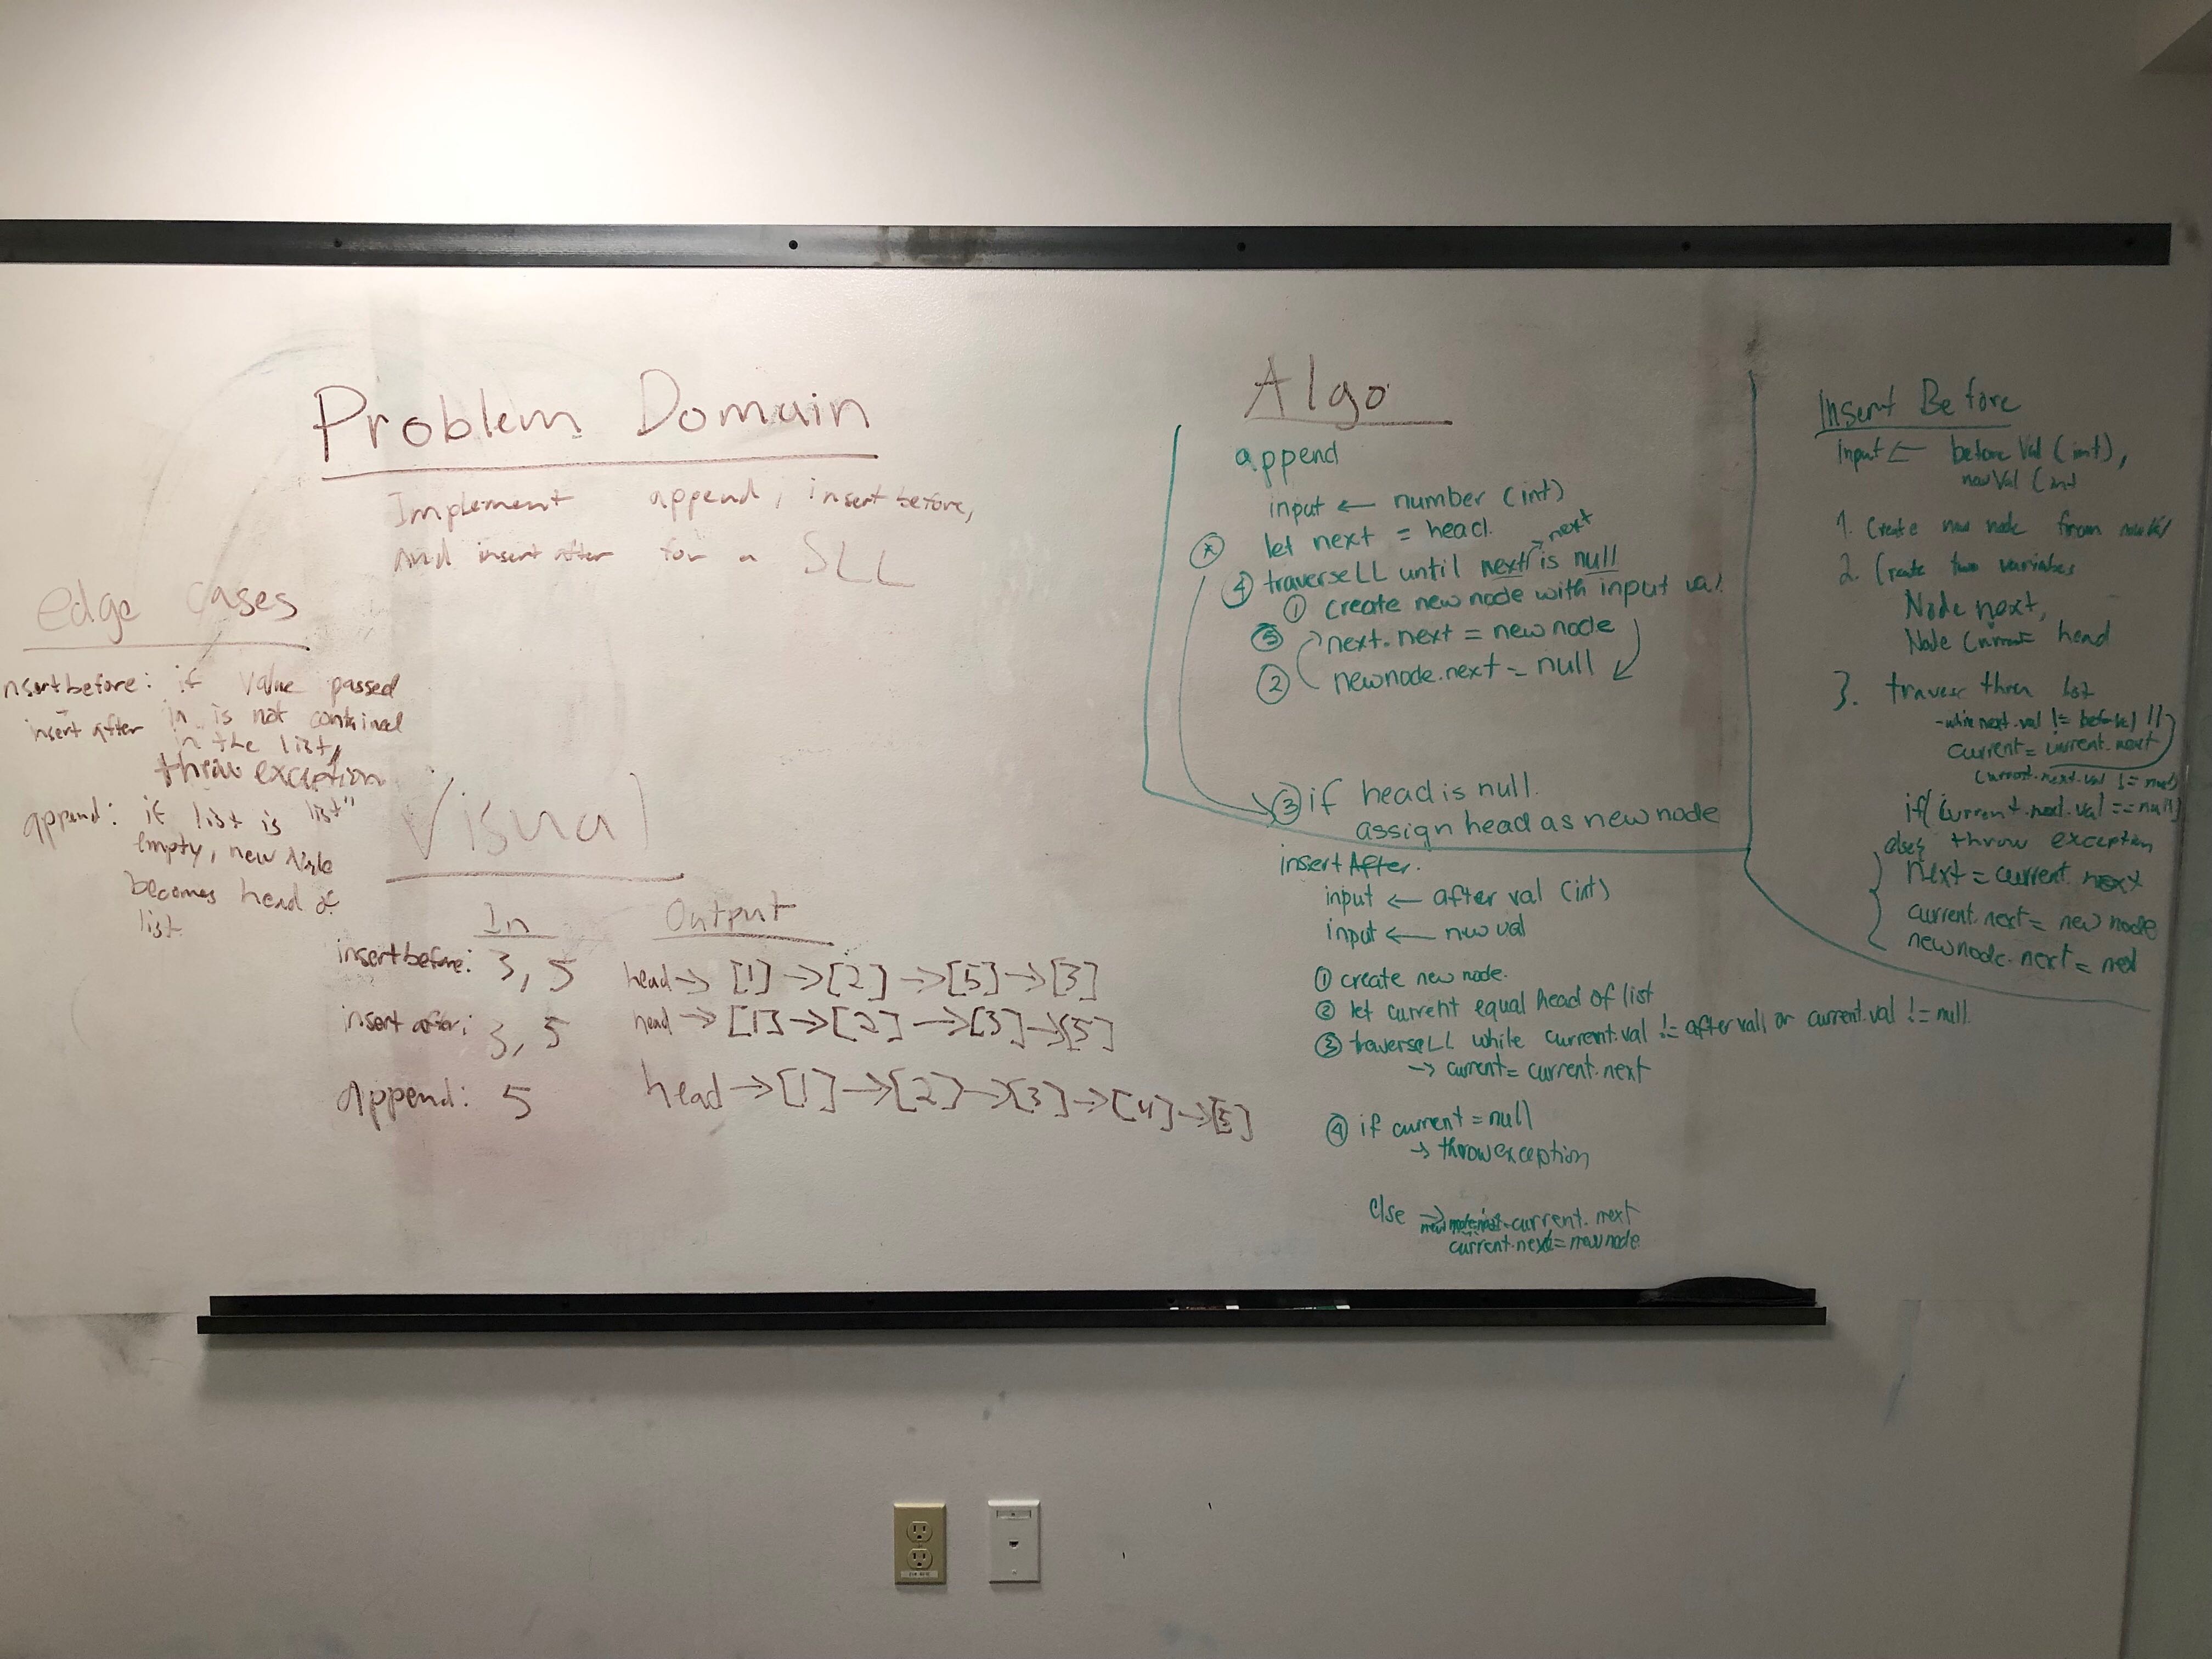 Problem Domain
Implement append, insert before,
And insert after for a SLL
edge cases
nsertbefore: if value passed
insert after in is not contained
in the list,
throw exception
append: if list is list"
empty, new Node
becomes head of
list
Visual
In Output
insertbefore: 3, 5 head → [1] → [2] → [5] → [3]
insert after: 3, 5 head → [1] → [2] → [3] → [5]
Append: 5 head → [1] → [2] → [3] → [4] → [5]
Algo
append
input ← number (int)
let next = head. next
④ traverse LL until next is null
① create new node with input val
⑤ next.next = new node
② newnode.next = null
③ if head is null.
assign head as new node
insert After.
input ← after val (int)
input ← new val
① create new node.
② let current equal head of list
③ traverse LL while current.val != after vall or current.val != null
→ current = current.next
④ if current = null
→ throw exception
else → current.next
current.next = new node
Insert Before
Input ← before Val (int),
new Val (int
1. Create new node from
2. Create two variables
Node next,
Node current head
3. traverse thru list
- while next.val != ||
current = current.next
current.next.val != null)
if( current.next.val == null)
else{ throw exception
next = current next
current.next = new node
newnode.next = next